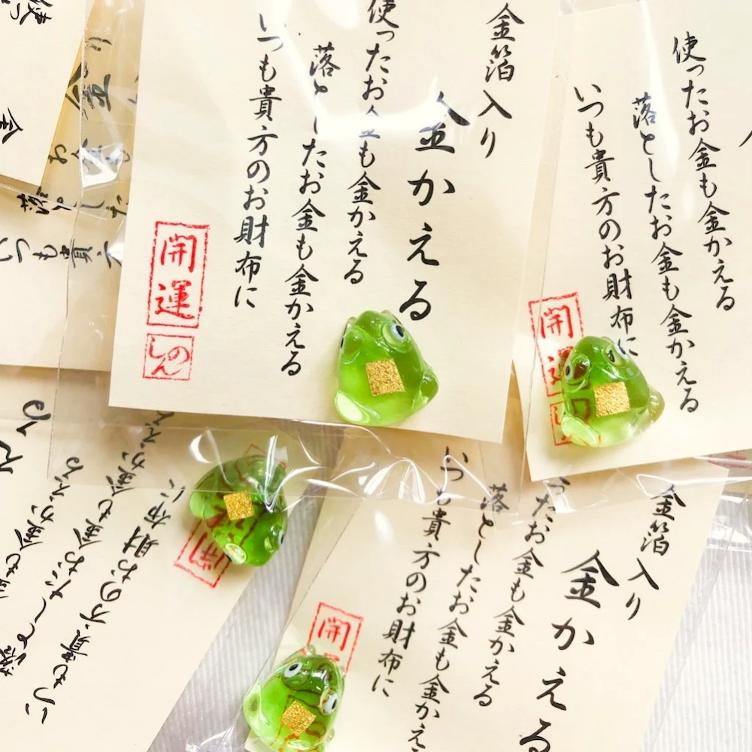 金箔入り
金かえる
使ったお金も金かえる
落としたお金も金かえる
いつも貴方のお財布に
開運
使ったお金も金かえる
落としたお金も金かえる
いつも貴方のお財布に
開運
金箔入り
金かえる
ったお金も金かえる
落としたお金も金かえ
いつも貴方のお財布に
開
お財布に
開